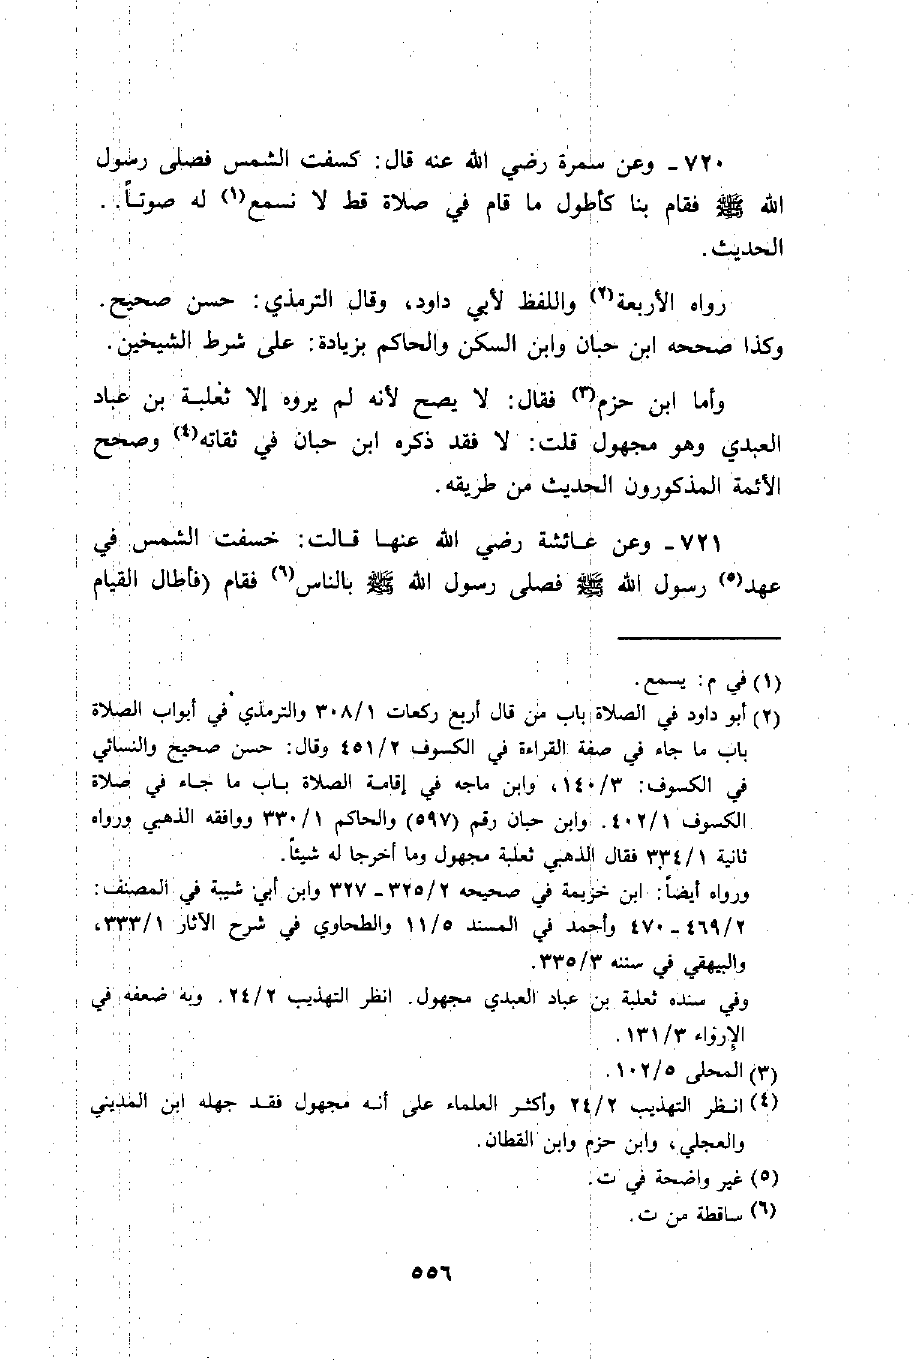 ٧٢٠ـ وعن سمرة رضي الله عنه قال: كسفت الشمس فصلى رسول
الله ﷺ فقام بنا كأطول ما قام في صلاة قط لا نسمع(١) له صوتاً. .
الحديث.
رواه الأربعة(٢) واللفظ لأبي داود، وقال الترمذي: حسن صحيح.
وكذا صححه ابن حبان وابن السكن والحاكم بزيادة: على شرط الشيخين.
وأما ابن حزم(٣) فقال: لا يصح لأنه لم يروه إلا ثعلبة بن عباد
العبدي وهو مجهول قلت: لا فقد ذكره ابن حبان في ثقاته(٤) وصحح
الأئمة المذكورون الحديث من طريقه.
٧٢١ـ وعن عائشة رضي الله عنها قالت: خسفت الشمس في
عهد(٥) رسول الله ﷺ فصلى رسول الله ﷺ بالناس(٦) فقام (فأطال القيام
(١) في م: يسمع.
(٢) أبو داود في الصلاة باب من قال أربع ركعات ٣٠٨/١ والترمذي في أبواب الصلاة
باب ما جاء في صفة القراءة في الكسوف ٤٥١/٢ وقال: حسن صحيح والنسائي
في الكسوف: ١٤٠/٣، وابن ماجه في إقامة الصلاة باب ما جاء في صلاة
الكسوف ٤٠٢/١. وابن حبان رقم (٥٩٧) والحاكم ٣٣٠/١ ووافقه الذهبي ورواه
ثانية ٣٣٤/١ فقال الذهبي ثعلبة مجهول وما أخرجا له شيئاً.
ورواه أيضاً: ابن خزيمة في صحيحه ٣٢٥/٢ـ ٣٢٧ وابن أبي شيبة في المصنف:
٤٦٩/٢ـ ٤٧٠ وأحمد في المسند ١١/٥ والطحاوي في شرح الآثار ٣٣٣/١،
والبيهقي في سننه ٣٣٥/٣.
وفي سنده ثعلبة بن عباد العبدي مجهول. انظر التهذيب ٢٤/٢. وبه ضعفه في
الإرواء ١٣١/٣.
(٣) المحلى ١٠٢/٥.
(٤) انظر التهذيب ٢٤/٢ وأكثر العلماء على أنه مجهول فقد جهله ابن المديني
والعجلي، وابن حزم وابن القطان.
(٥) غير واضحة في ت.
(٦) ساقطة من ت.
٥٥٦